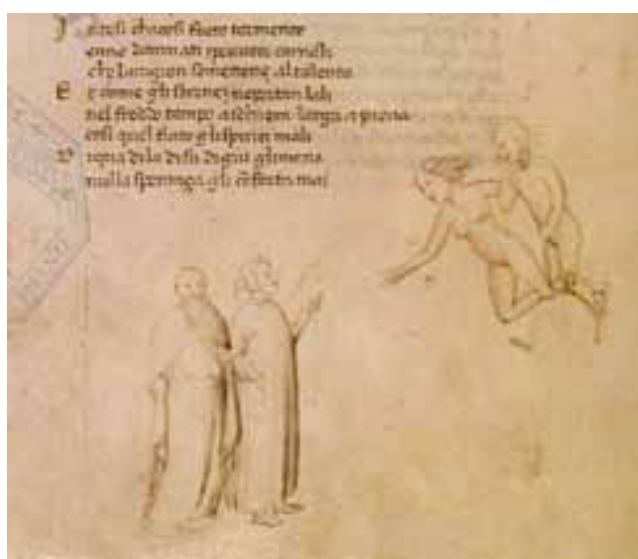 J ntesi chacosi facto tormento
enno dannati i peccatori carnali
che laragion sometteno al talento
E come gli stornei neportan lali
nel freddo tempo aschiera larga e piena
cosi quel fiato glispiriti mali
D iqua dila digiu glimena
nulla speranza gli cōforta mai